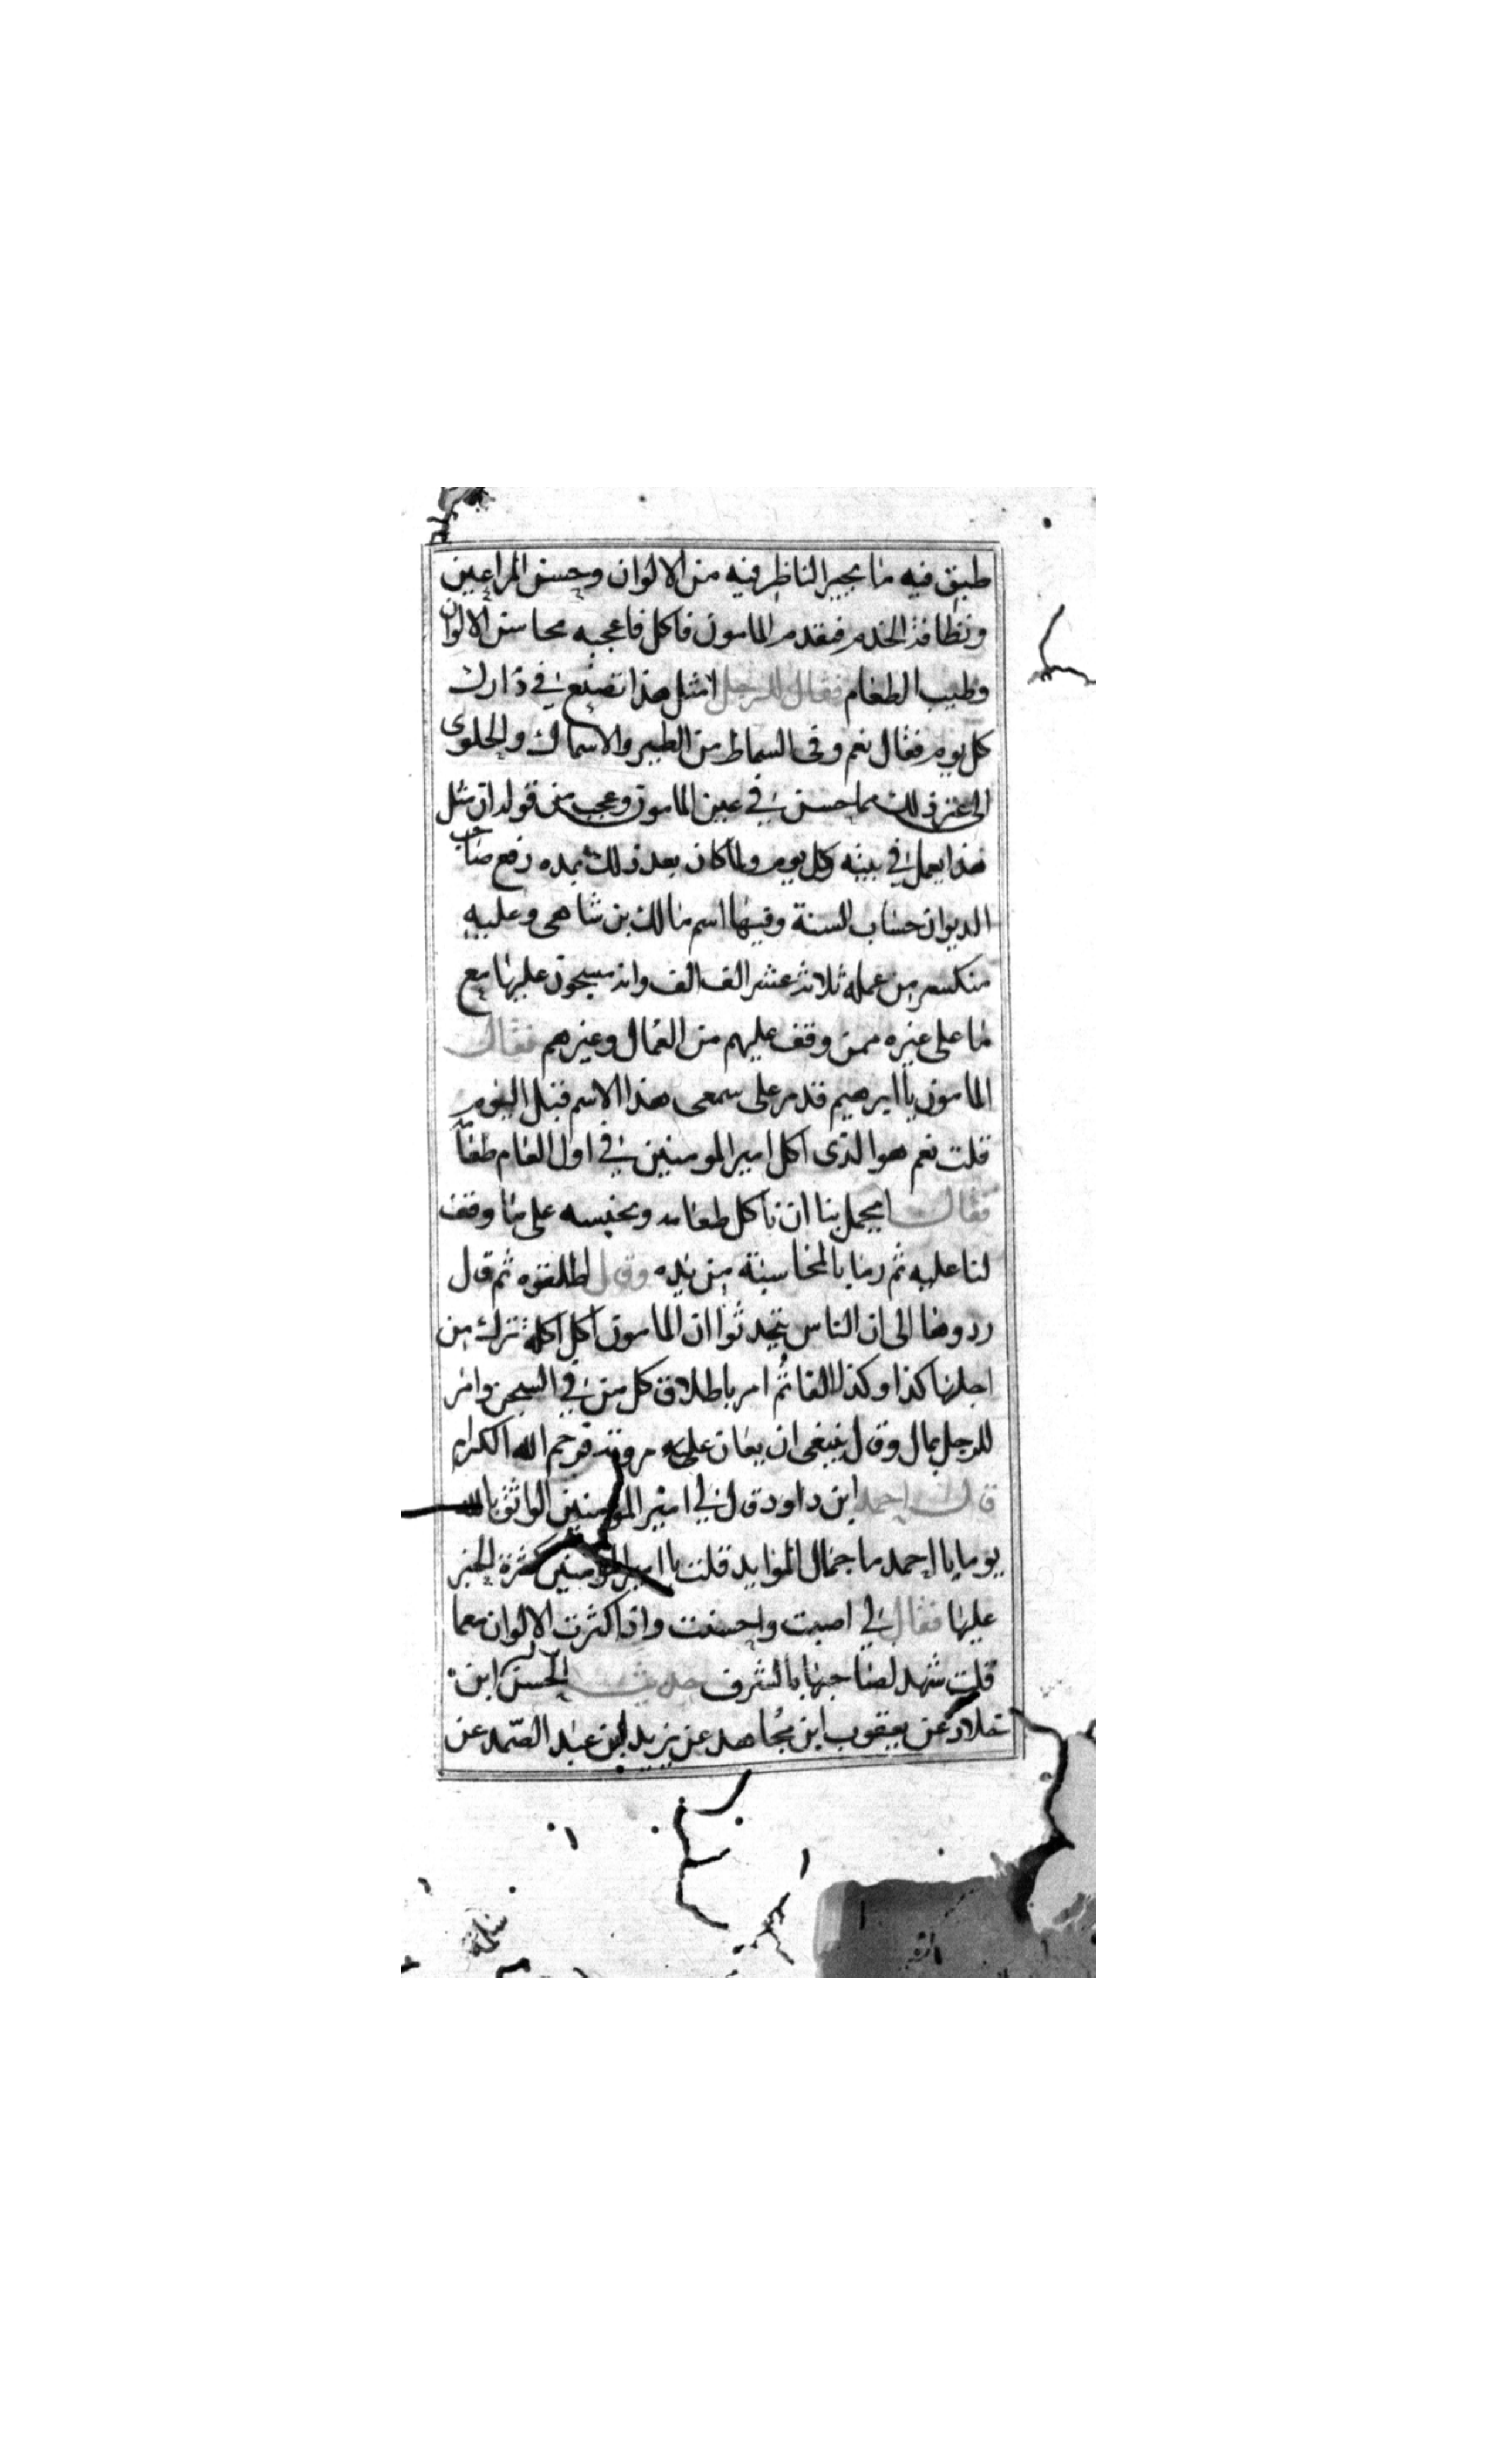 طبق فيه ما يحير الناظر فيه من الالوان وحسن المراعين
ونظافة الخدم فتقدم المامون فاكل فاعجبه محاسن الالوان
وطيب الطعام فقال للرجل امثل هذا تصنع في دارك
كل يوم فقال نعم وفى السماط من الطير والاسماك والحلوى
الى غير ذلك مما حسن في عين المامون وعجب من قوله ان مثل
هذا يعمل في بيته كل يوم ولما كان بعد ذلك بمده رفع صاحب
الديوان حساب السنة وفيها اسم مالك بن شاهى وعليه
منكسر من عمله ثلاثة عشر الف الف وانه مسجون عليها مع
ما على غيره ممن وقف عليهم من العمال وغيرهم فقال
المامون يا ابرهيم قد مر على سمعى هذا الاسم قبل اليوم
قلت نعم هو الذى اكل امير المومنين في اول العام طعامه
فقال ايجمل بنا ان ناكل طعامه ونحبسه على ما وقف
لنا عليه ثم رما بالمحاسبة من يده وقال اطلقوه ثم قال
ردوها الى ان الناس يتحدثوا ان المامون اكل اكلة ترك من
اجلها كذا وكذا الفا ثم امر باطلاق كل من في السجن وامر
للرجل بمال وقال ينبغى ان يعان على مروته فرحم الله الكرام
قال احمد ابن داود قال لي امير المومنين الواثق بالله
يوما يا احمد ما جمال الموايد قلت يا امير المومنين كثرة الخبز
عليها فقال لي اصبت واحسنت واذا كثرت الالوان معما
قلت شهد لصاحبها بالشرف حديث الحسن ابن
خلاد عن يعقوب ابن مجاهد عن يزيد ابن عبد الصمد عن